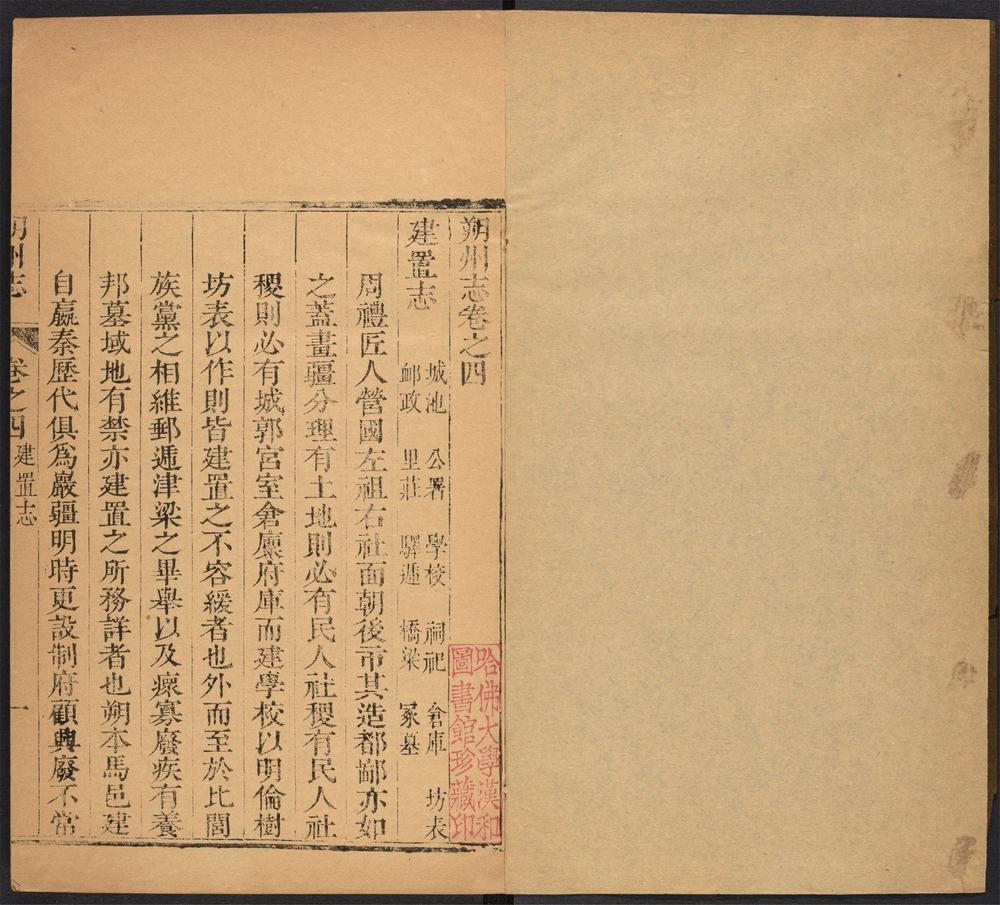 朔州志卷之四
建置志
城池 公署 學校 祠祀 倉庫 坊表
卹政 里莊 驛遞 橋梁 冢墓
周禮匠人營國左祖右社面朝後市其造都鄙亦如
之蓋畫疆分理有土地則必有民人社稷有民人社
稷則必有城郭宮室倉廪府庫而建學校以明倫樹
坊表以作則皆建置之不容緩者也外而至於比閭
族黨之相維郵遞津梁之畢舉以及瘝寡廢疾有養
邦墓域地有禁亦建置之所務詳者也朔本馬邑建
自嬴秦歷代俱爲嚴疆明時更設制府顧興廢不常
朔州志 卷之四 建置志 一
哈佛大學漢和
圖書館珍藏印